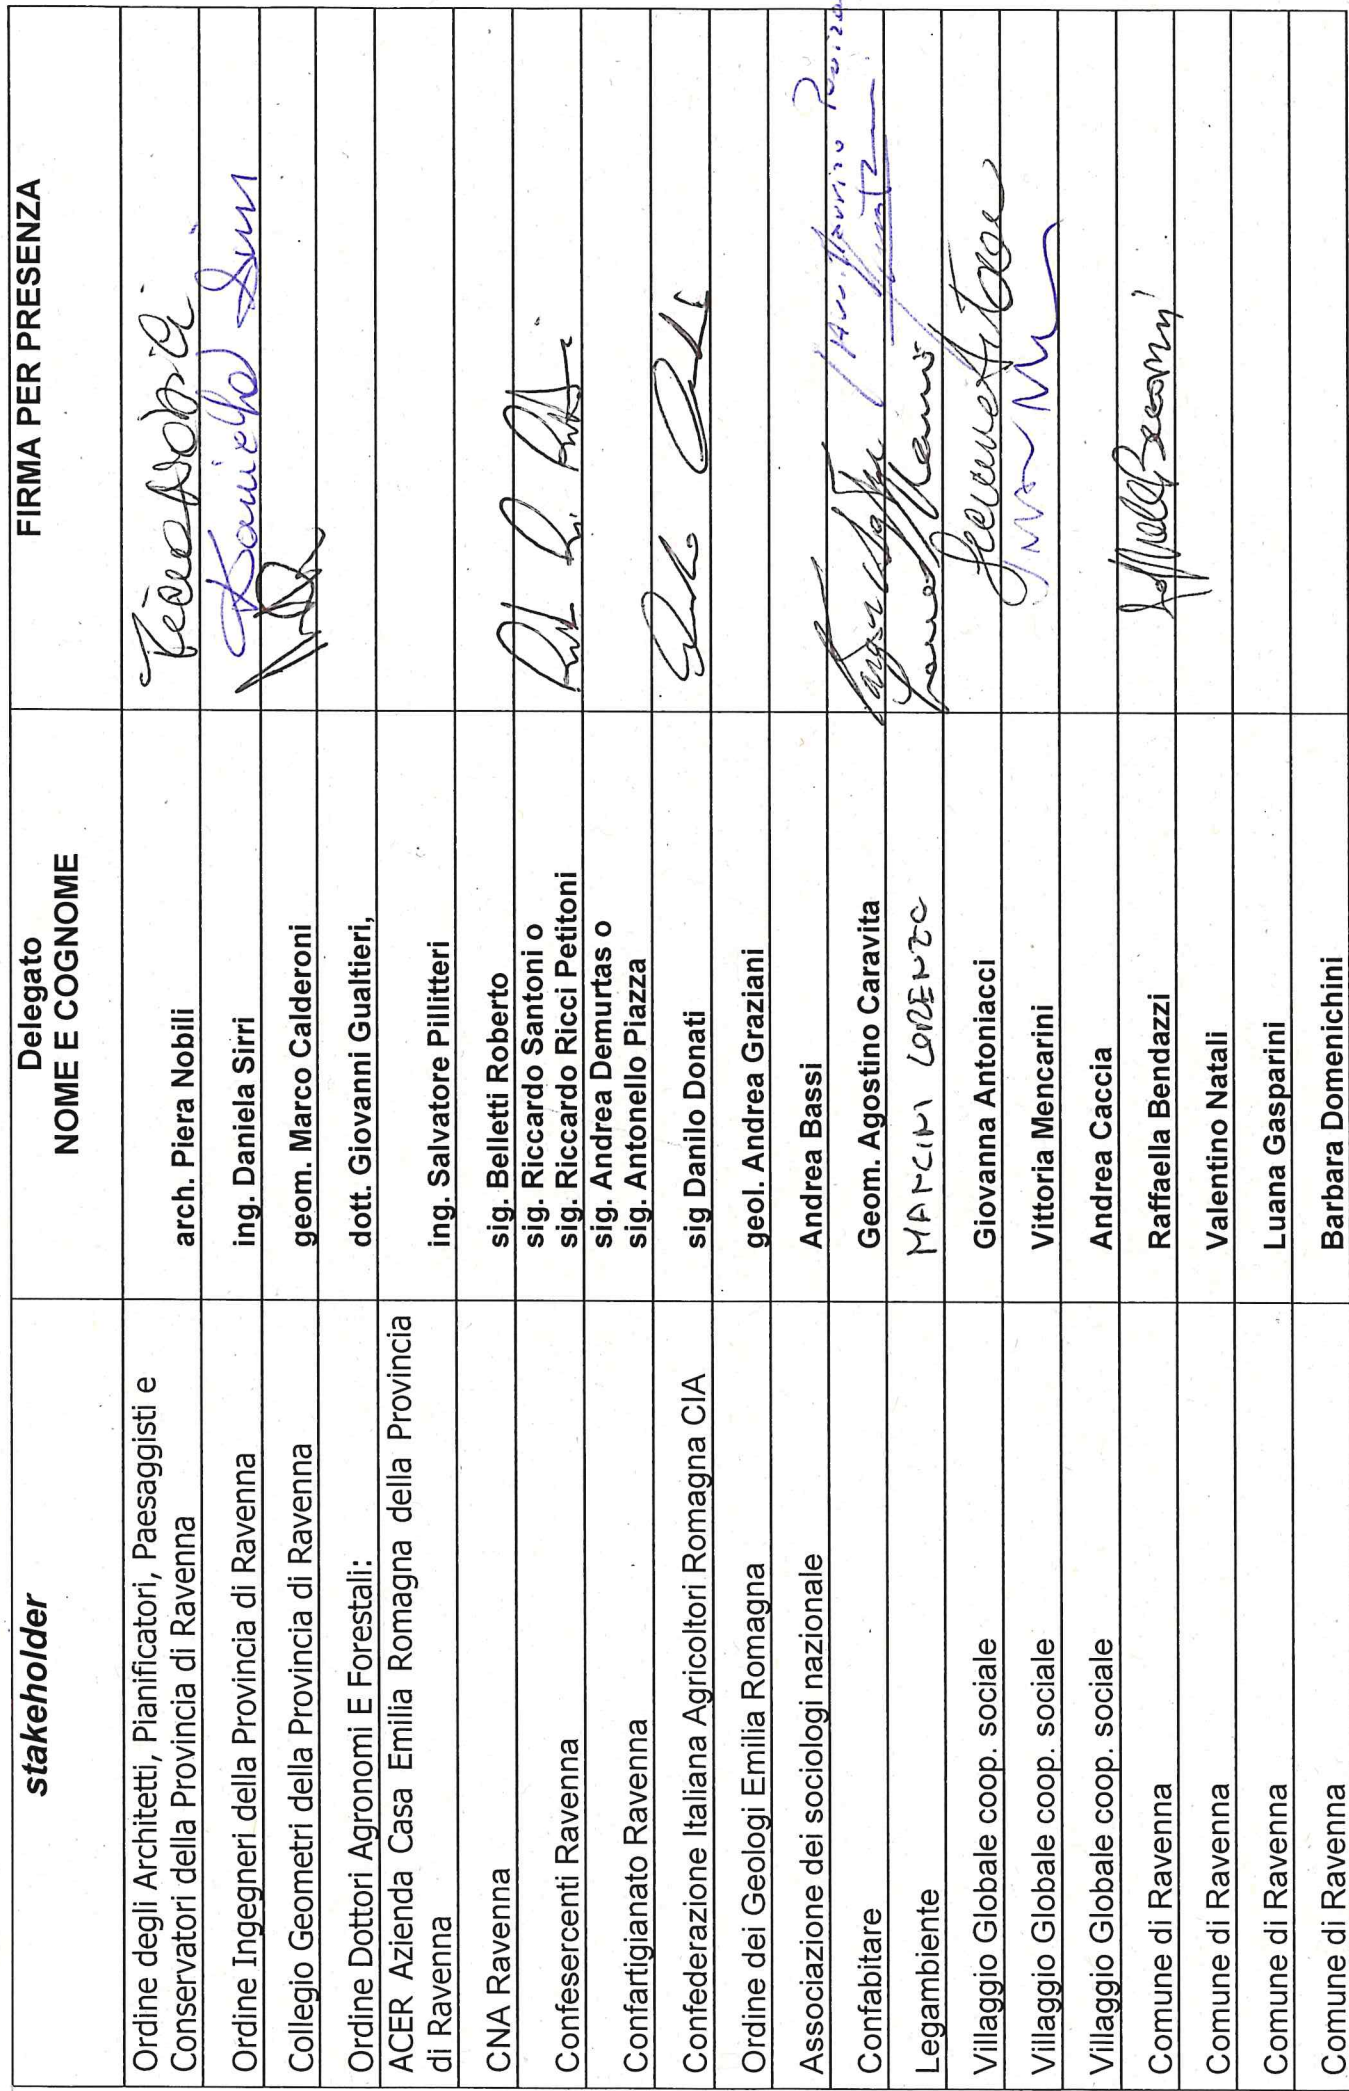 stakeholder
Delegato
NOME E COGNOME
FIRMA PER PRESENZA
Ordine degli Architetti, Pianificatori, Paesaggisti e
Conservatori della Provincia di Ravenna
arch. Piera Nobili
Ordine Ingegneri della Provincia di Ravenna
ing. Daniela Sirri
Daniela Sirri
Collegio Geometri della Provincia di Ravenna
geom. Marco Calderoni
Ordine Dottori Agronomi E Forestali:
dott. Giovanni Gualtieri,
ACER Azienda Casa Emilia Romagna della Provincia
di Ravenna
ing. Salvatore Pillitteri
CNA Ravenna
sig. Belletti Roberto
Confesercenti Ravenna
sig. Riccardo Santoni o
sig. Riccardo Ricci Petitoni
Confartigianato Ravenna
sig. Andrea Demurtas o
sig. Antonello Piazza
Confederazione Italiana Agricoltori Romagna CIA
sig Danilo Donati
Ordine dei Geologi Emilia Romagna
geol. Andrea Graziani
Associazione dei sociologi nazionale
Andrea Bassi
Confabitare
Geom. Agostino Caravita
Legambiente
MANCINI LORENZO
Villaggio Globale coop. sociale
Giovanna Antoniacci
Villaggio Globale coop. sociale
Vittoria Mencarini
Villaggio Globale coop. sociale
Andrea Caccia
Comune di Ravenna
Raffaella Bendazzi
Comune di Ravenna
Valentino Natali
Comune di Ravenna
Luana Gasparini
Comune di Ravenna
Barbara Domenichini